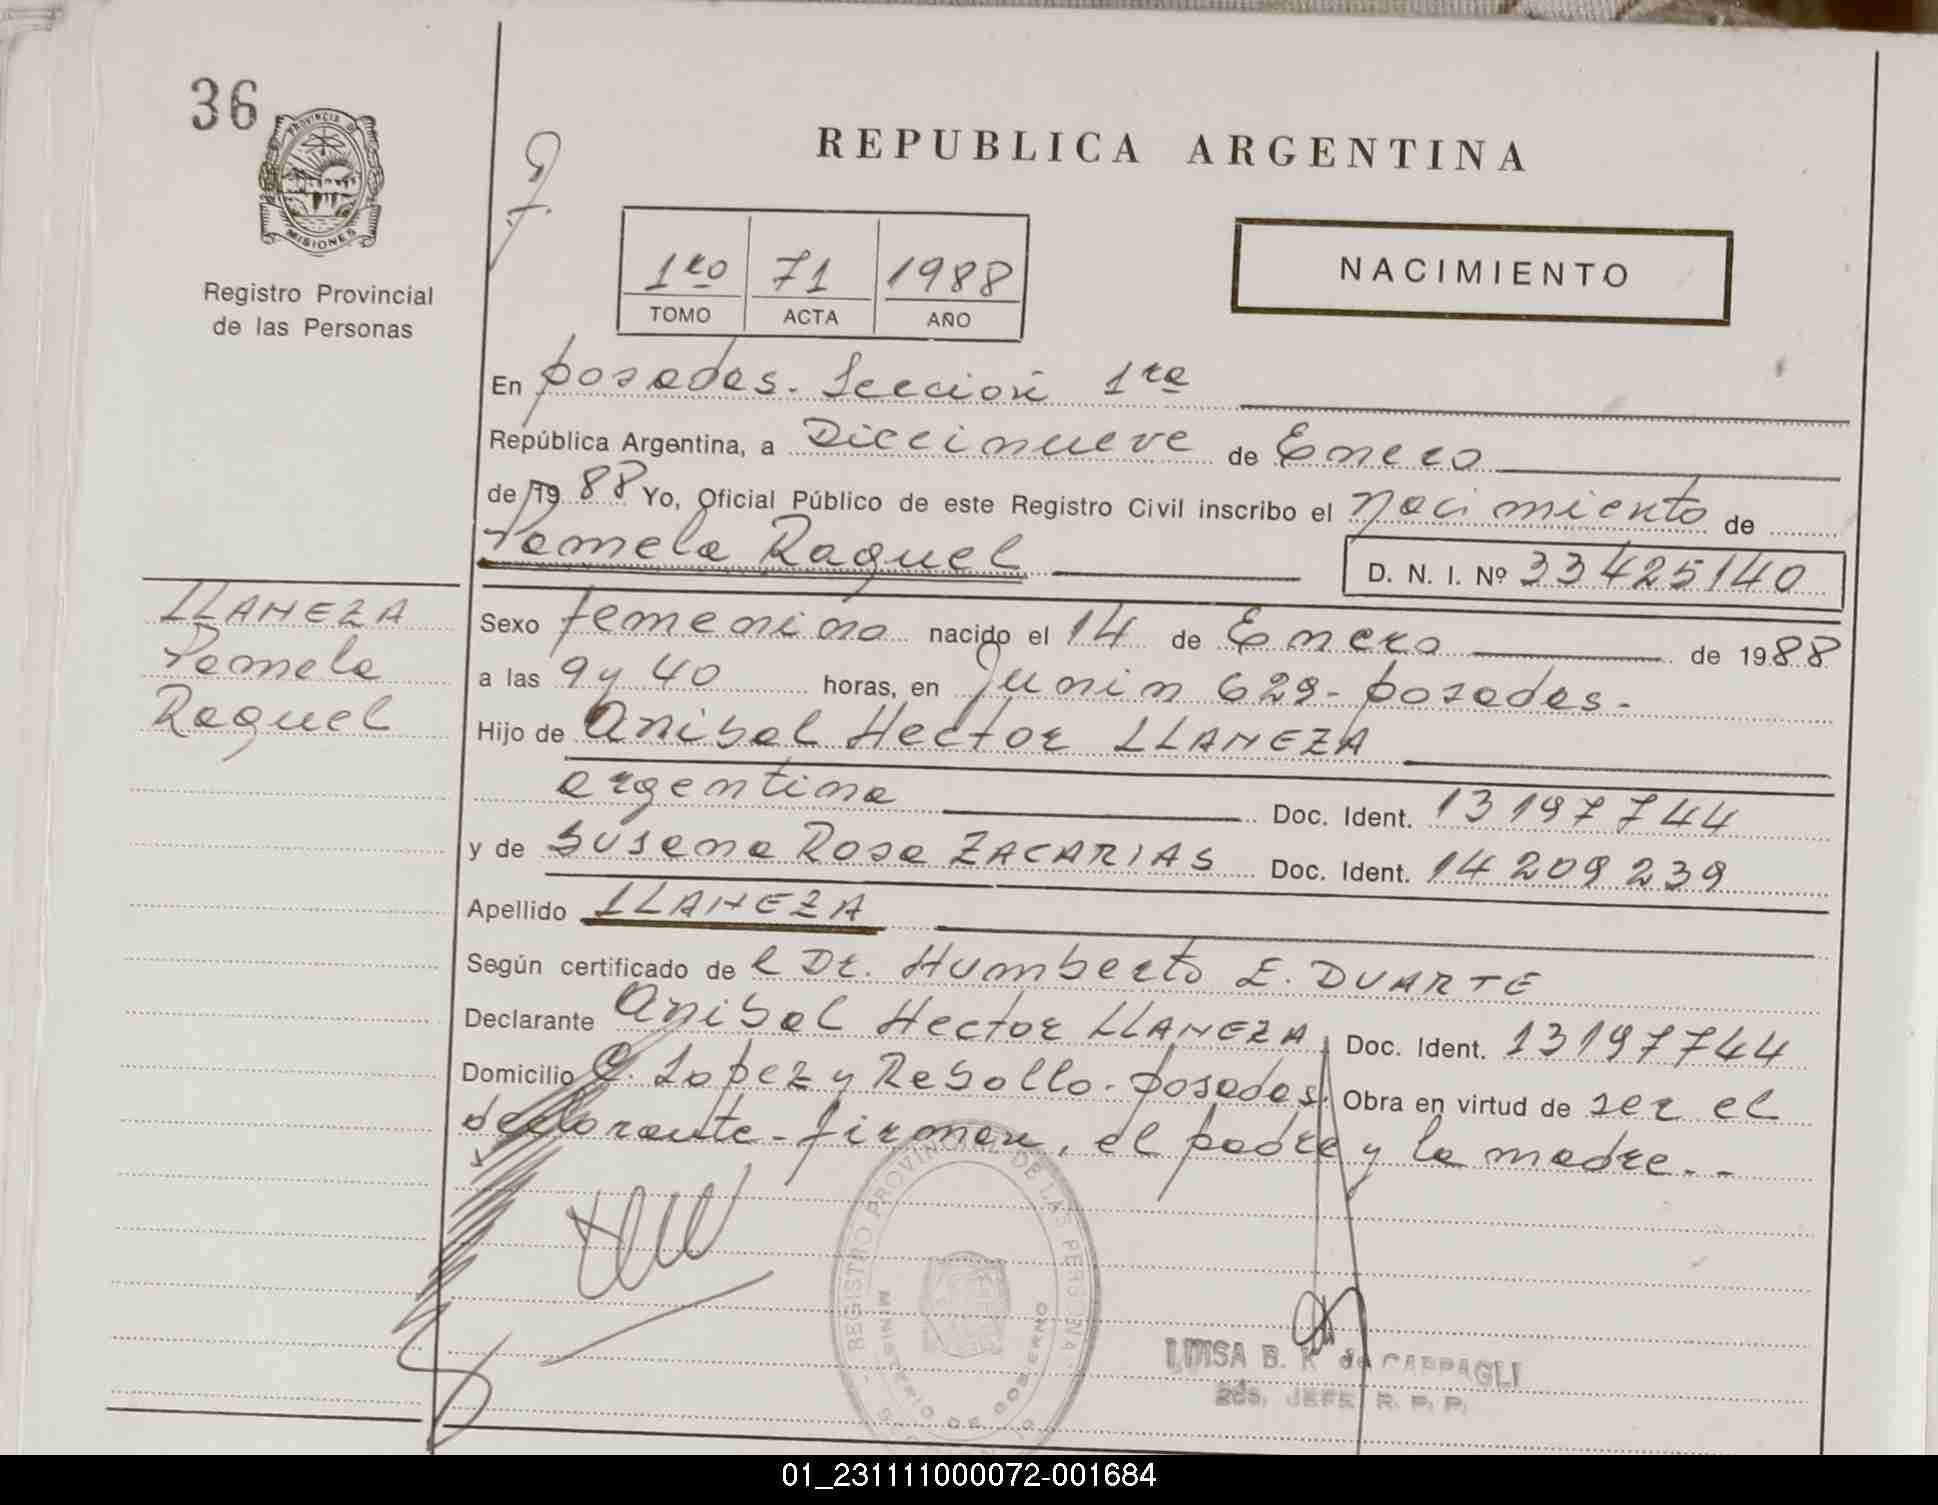 36
PROVINCIA D
MISIONES
Registro Provincial
de las Personas
REPUBLICA ARGENTINA
1ro 71 1988
TOMO ACTA AÑO
NACIMIENTO
En posadas. Sección 1ra
República Argentina, a Diecinueve de Enero
de 19 88 Yo, Oficial Público de este Registro Civil inscribo el nacimiento de
Pamela Raquel D. N. I. Nº 33425140
LLANEZA
Pamela
Raquel
Sexo femenino nacido el 14 de Enero de 1988
a las 9 y 40 horas, en Junin 629 - posadas.
Hijo de Anibal Hector LLANEZA
argentina Doc. Ident. 13197744
y de Susana Rosa ZACARIAS Doc. Ident. 14209239
Apellido LLANEZA
Según certificado de l Dr. Humberto E. DUARTE
Declarante Anibal Hector LLANEZA Doc. Ident. 13197744
Domicilio C. Lopez y Rebollo. posadas. Obra en virtud de ser el
declarante - firman, el padre y la madre. -
REGISTRO PROVINCIAL DE LAS PERSONA
MINISTERIO DE GOBIERNO
LUISA B. K de CARPAGLI
2do. JEFE R. P. P.
01_231111000072-001684